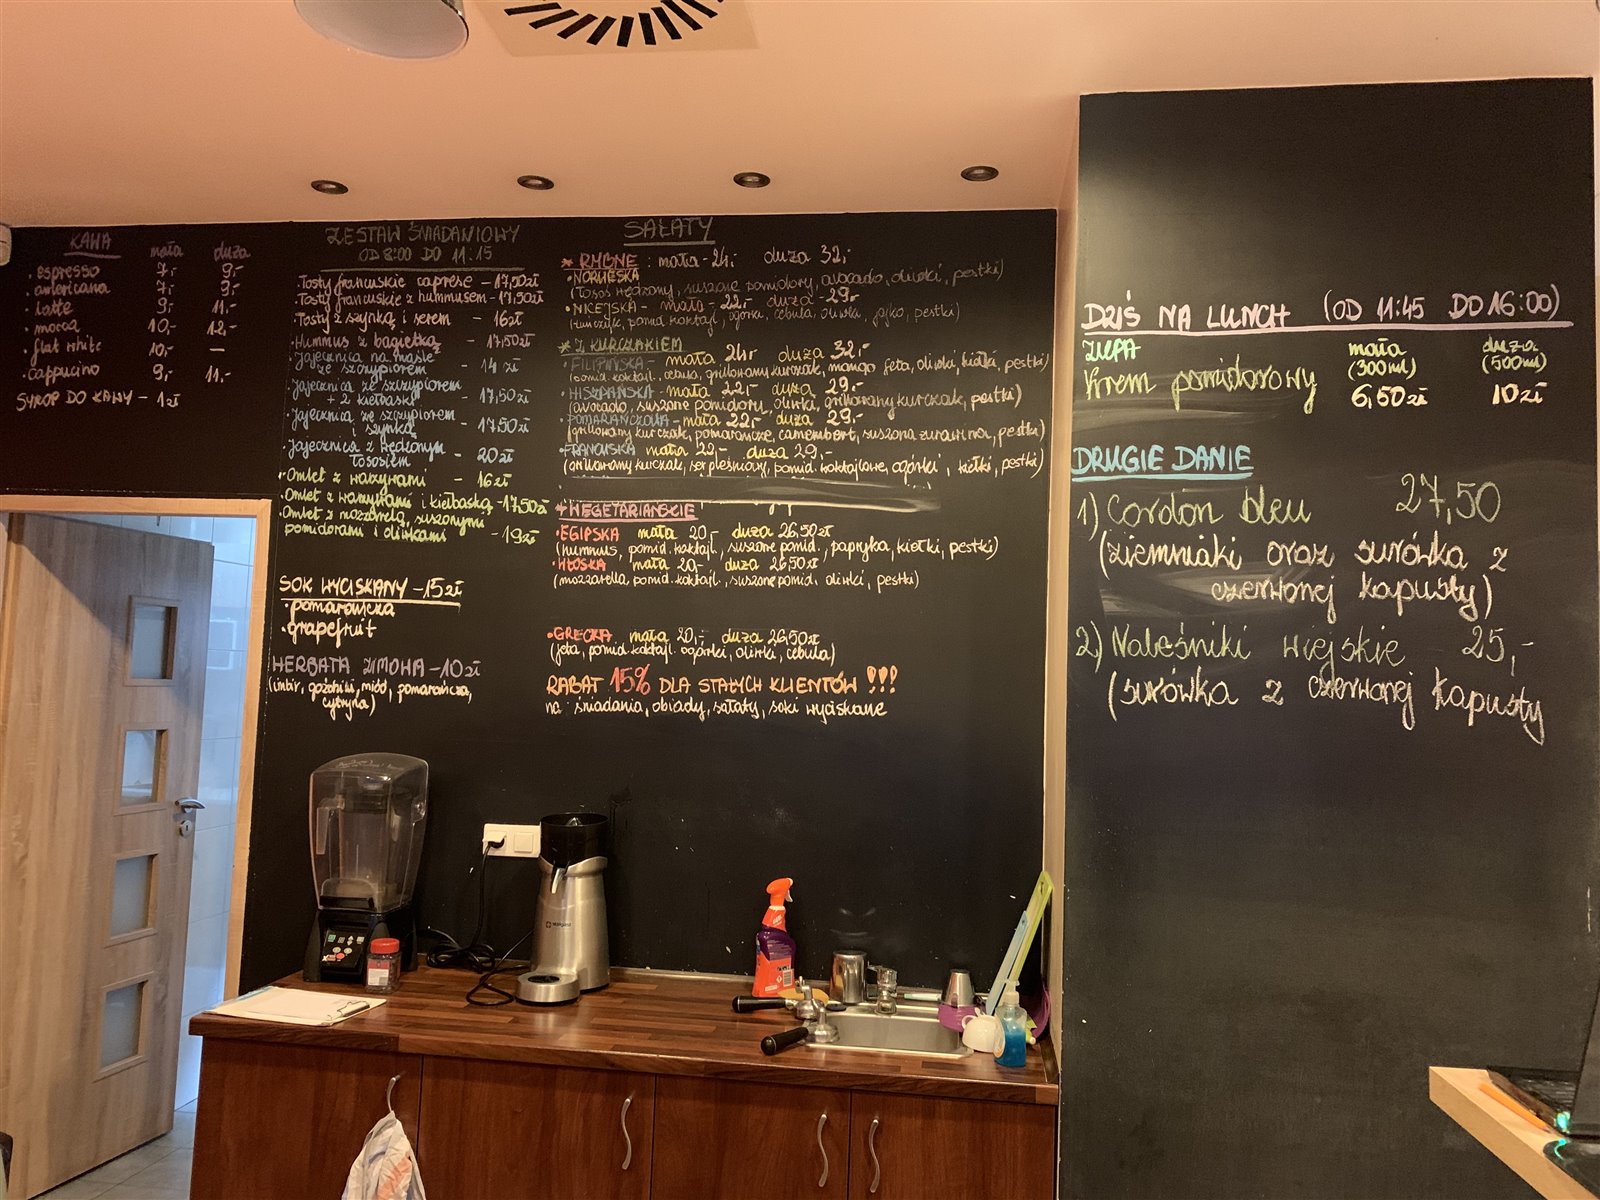 KAWA mała duża
• espresso 7,- 9,-
• americana 7,- 9,-
• latte 9,- 11,-
• mocca 10,- 12,-
• flat white 10,- —
• cappucino 9,- 11,-
SYROP DO KAWY - 1zł
ZESTAW ŚNIADANIOWY
OD 8:00 DO 11:15
• Tosty francuskie caprese - 17,50zł
• Tosty francuskie z hummusem - 17,50zł
• Tosty z szynką i serem - 16zł
• Hummus z bagietką - 17,50zł
• Jajecznica na maśle
ze szczypiorem - 14 zł
• Jajecznica ze szczypiorem
+ 2 kiełbaski - 17,50zł
• Jajecznica ze szczypiorem
i szynką - 17,50zł
• Jajecznica z wędzonym
łososiem - 20zł
• Omlet z warzywami - 16zł
• Omlet z warzywami i kiełbaską - 17,50zł
• Omlet z mozzarelą, suszonymi
pomidorami i oliwkami - 19zł
SOK WYCISKANY - 15zł
• pomarańcza
• grapefruit
HERBATA ZIMOWA - 10zł
(imbir, goździki, miód, pomarańcza,
cytryna)
SAŁATY
* RYBNE: mała - 24,- duża 32,-
• NORWESKA
(łosoś wędzony, suszone pomidory, avocado, oliwki, pestki)
• NICEJSKA - mała - 22,- duża - 29,-
(tuńczyk, pomid. koktajl, ogórki, cebula, oliwki, jajko, pestki)
* Z KURCZAKIEM
• FILIPIŃSKA - mała 24,- duża 32,-
(pomid. koktajl. cebula, grillowany kurczak, mango feta, oliwki, kiełki, pestki)
• HISZPAŃSKA - mała - 22,- duża 29,-
(avocado, suszone pomidory, oliwki, grillowany kurczak, pestki)
• POMARAŃCZOWA - mała 22,- duża - 29,-
(grillowany kurczak, pomarańcze, camembert, suszona żurawina, pestki)
• FRANCUSKA mała 22,- duża 29,-
(grillowany kurczak, ser pleśniowy, pomid. koktajlowe, ogórki, kiełki, pestki)
* WEGETARIAŃSKIE
• EGIPSKA mała 20,- duża 26,50zł
(hummus, pomid. koktajl., suszone pomid., papryka, kiełki, pestki)
• WŁOSKA mała 20,- duża 26,50zł
(mozzarella, pomid. koktajl., suszone pomid. oliwki, pestki)
• GRECKA mała 20,- duża 26,50zł
(feta, pomid. koktajl. ogórki, oliwki, cebula)
RABAT 15% DLA STAŁYCH KLIENTÓW !!!
na: śniadania, obiady, sałaty, soki wyciskane
DZIŚ NA LUNCH (OD 11:45 DO 16:00)
ZUPA mała duża
(300ml) (500ml)
Krem pomidorowy 6,50zł 10zł
DRUGIE DANIE
1) Cordon bleu 27,50
(ziemniaki oraz surówka z
czerwonej kapusty)
2) Naleśniki wiejskie 25,-
(surówka z czerwonej kapusty